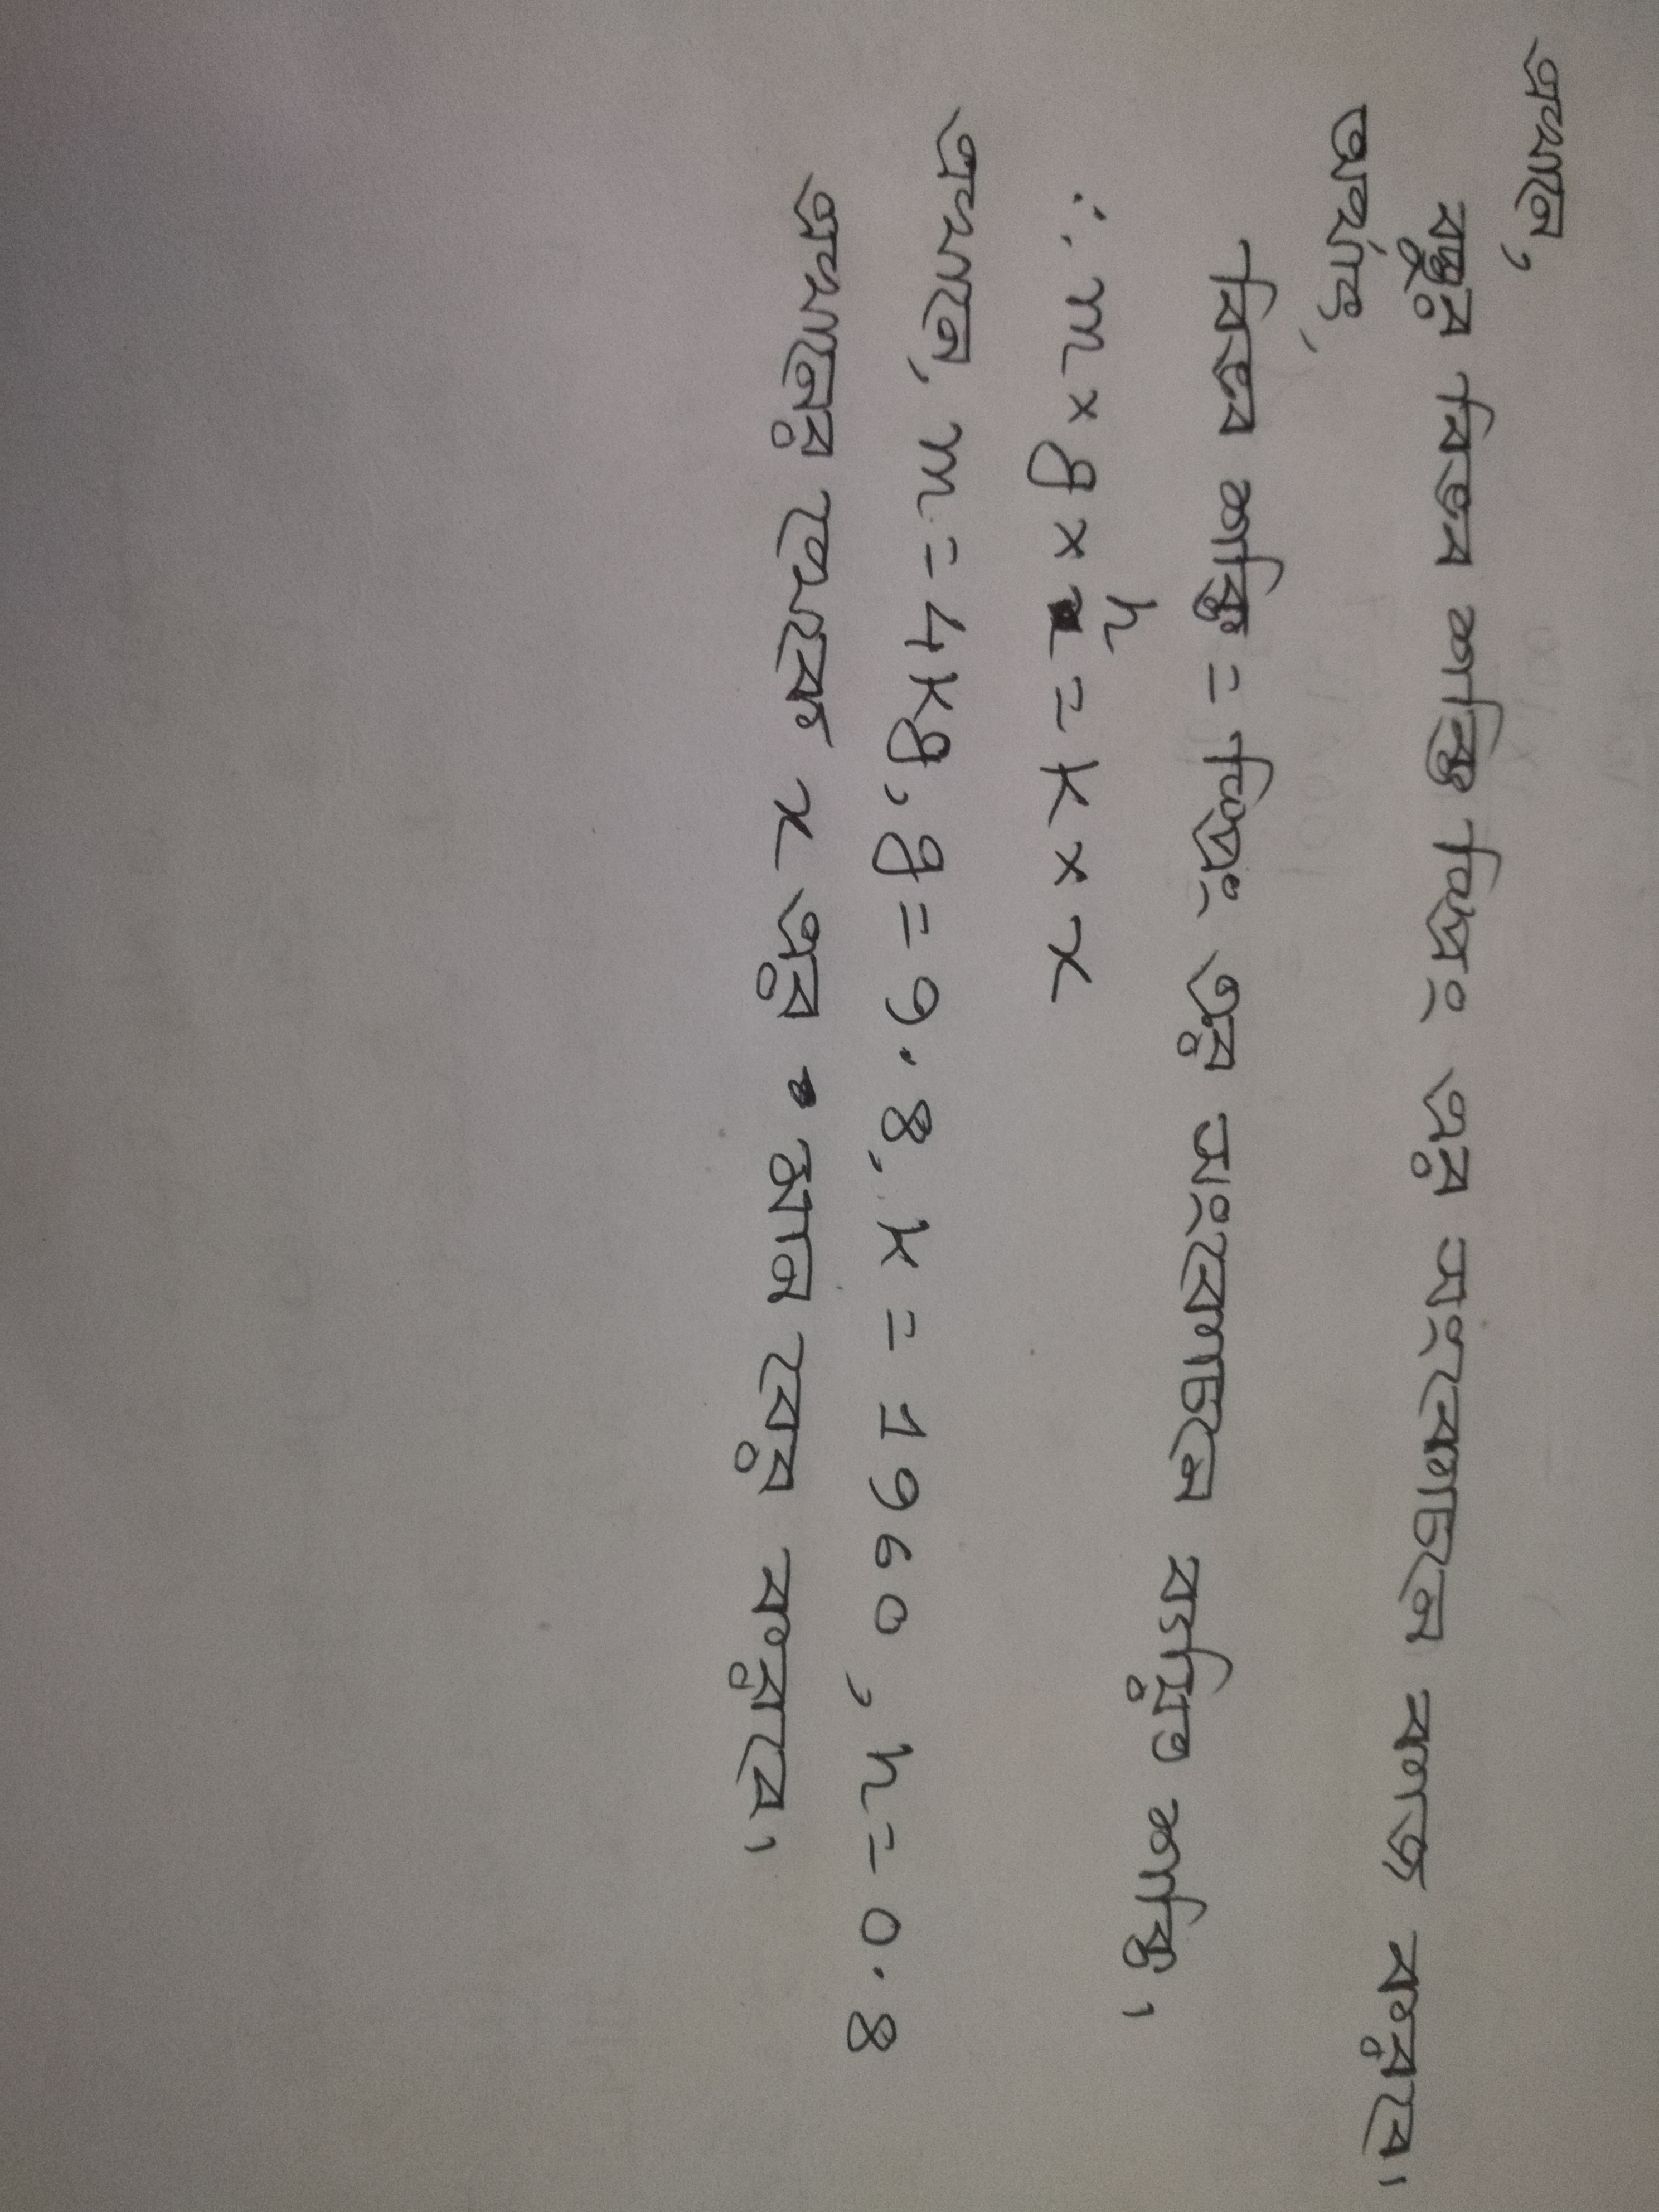 এখানে,
বস্তুর বিভব শক্তি স্প্রিং এর সংকোচনে কাজ করবে।
অর্থাৎ,
বিভব শক্তি = স্প্রিং এর সংকোচনে বর্ধিত শক্তি।
∴ m × g × h = k × x
এখানে, m = 4 kg, g = 9.8, k = 1960, h = 0.8
এখানের থেকে x এর মান বের করবে।